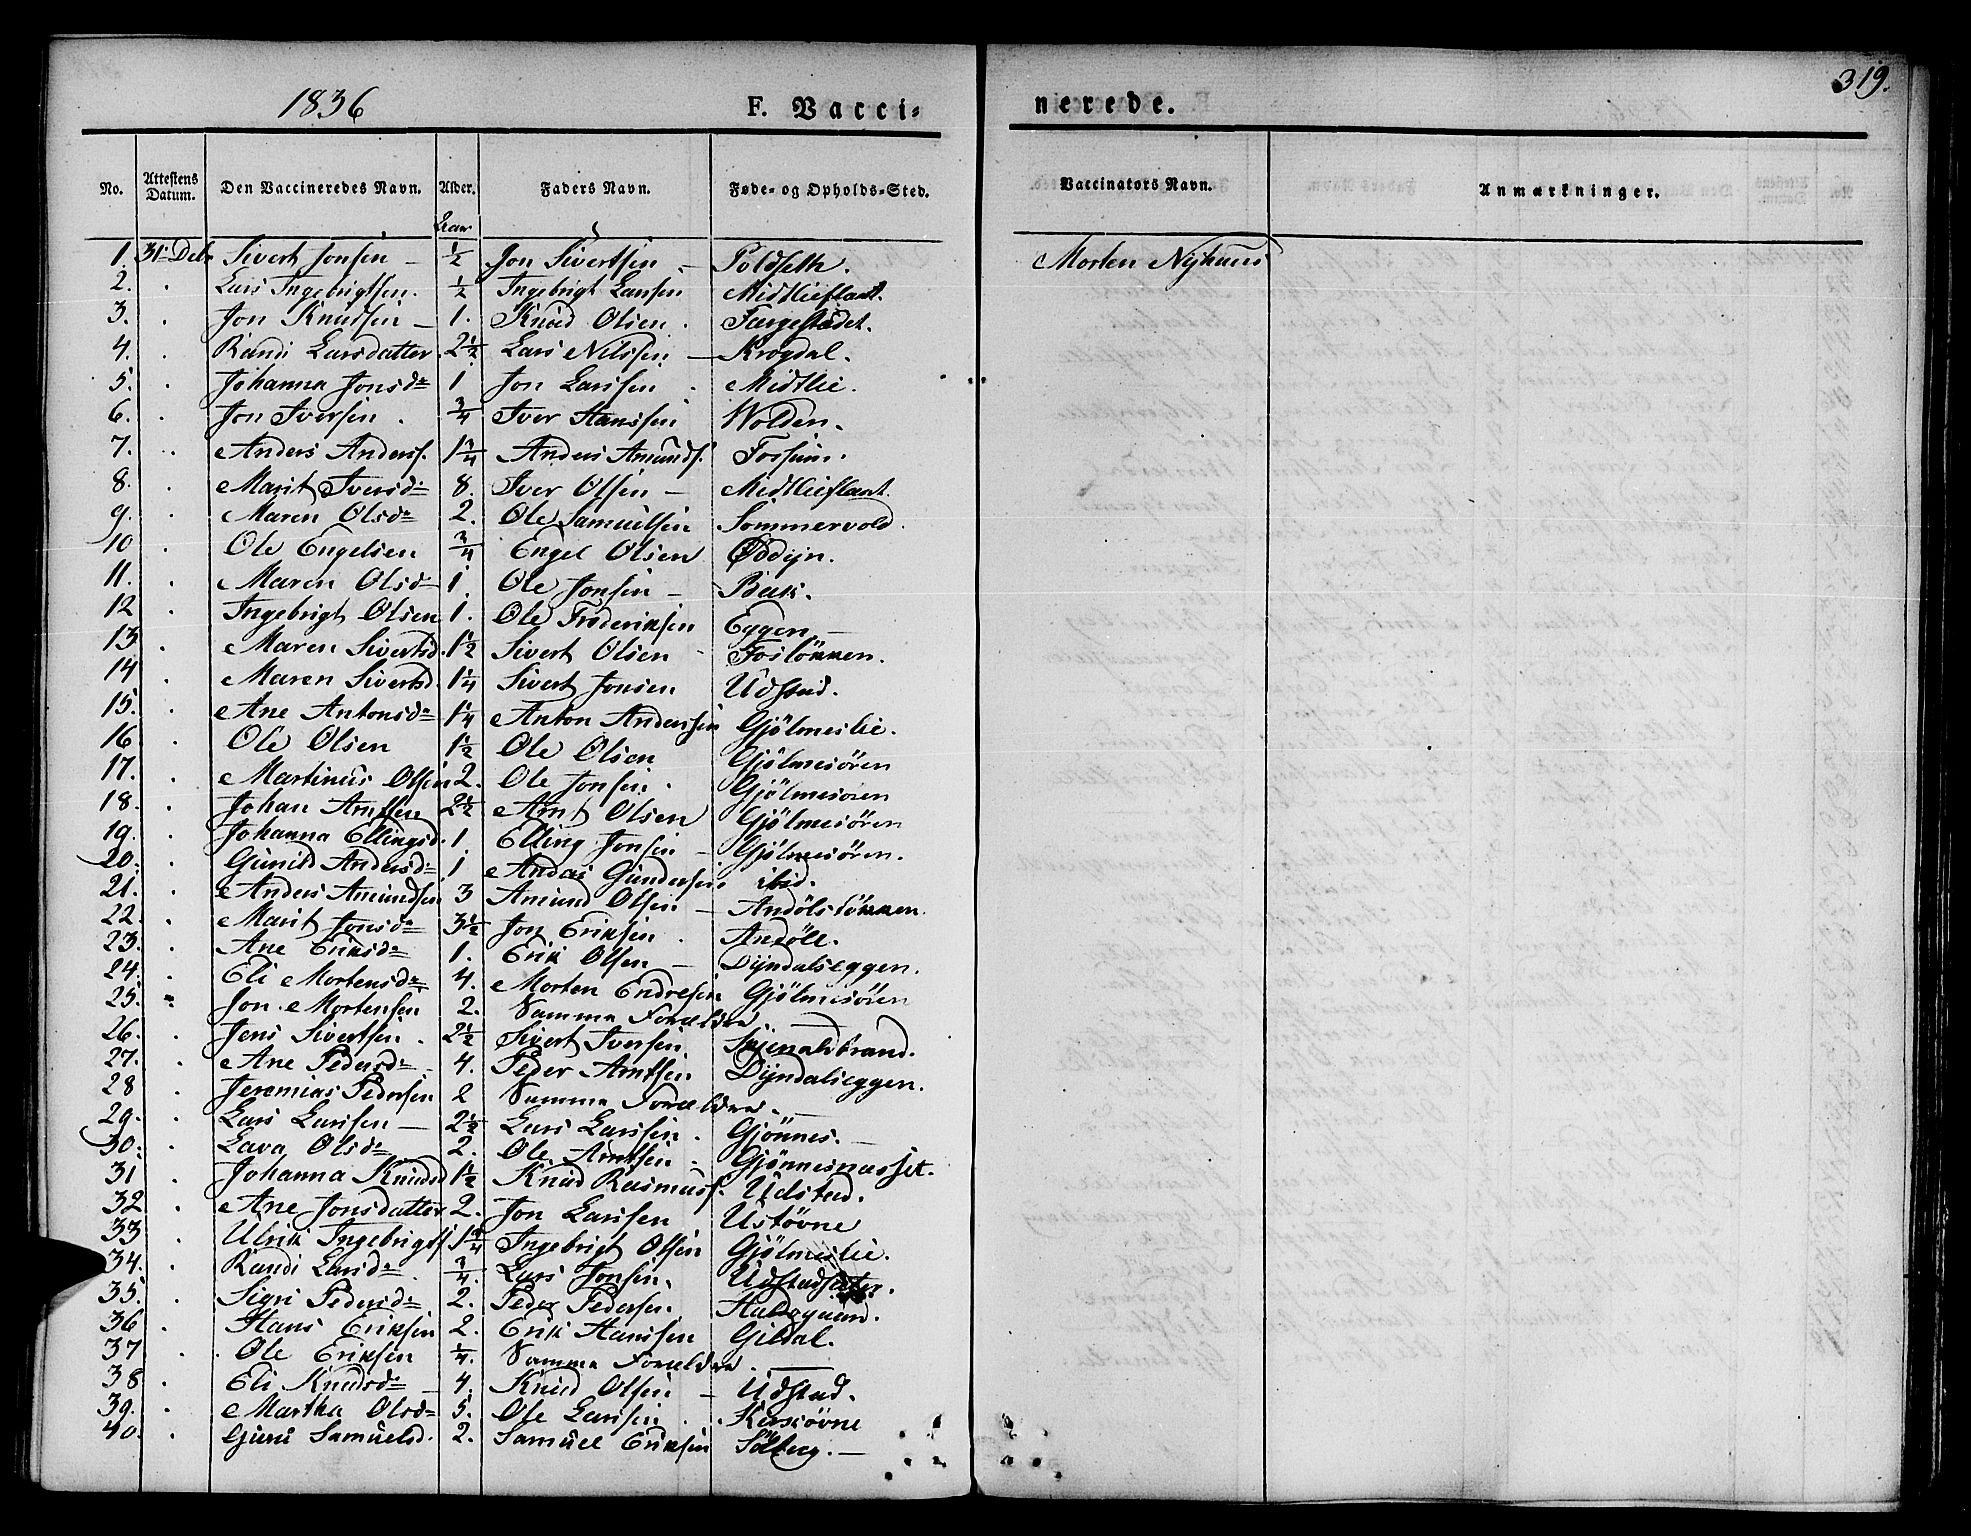 1836 F. Vacci- nerede. 319.
No. Attestens Datum. Den Vaccineredes Navn. Alder. Faders Navn. Føde- og Opholds-Sted. Vaccinators Navn. Anmærkninger.
Aar
1. 31 Dec Sivert Jonsen - 1/2 Jon Sivertsen - Poldseth. Morten Nyhuus
2. Lars Ingebrigtsen. 1/2 Ingebrigt Larsen Midtlieflaat.
3. Jon Knudsen - 1. Knud Olsen. Fargestadet.
4. Randi Larsdatter. 2 1/2 Lars Nilssen - Krogdal.
5. Johanna Jonsd. 1 Jon Larssen. Midtlie.
6. Jon Iversen. 3/4 Iver Hanssen Wolden.
7. Anders Anders. 1 3/4 Anders Amunds. Fossum.
8. Marit Iversd. 8. Iver Olsen - Midtlieflaat.
9. Maren Olsd. 2. Ole Samuelsen Sommervold.
10 Ole Engelsen 3/4 Engel Olsen Øddyn.
11. Maren Olsd. 1. Ole Jonsen - Bæk.
12 Ingebrigt Olsen 1. Ole Frederiksen Eggen. -
13 Maren Sivertsd. 1 1/2 Sivert Olsen - Foslökken.
14 Maren Sivertsd. 1 1/4 Sivert Jonsen Udstad.
15. Ane Antonsd. 1 1/4 Anton Anderssen Gjölmeslie.
16 Ole Olsen 1 1/2 Ole Olsen Gjölmesören
17. Martinus Olsen 2. Ole Jonsen. Gjölmesören
18. Johan Arntsen 2 1/2 Arnt Olsen Gjölmesören
19. Johanna Ellingsd. 1. Elling Jonsen - Gjölmesören.
20. Gunild Andersd. 1 Anders Gundersen. ibid.
21. Anders Amundsen 3 Amund Olsen - Andölstökken.
22. Marit Jonsd. 3 1/2 Jon Eriksen. Andöll.
23. Ane Eriksd. 1. Erik Olsen - Dyndalseggen.
24. Eli Mortensd. 4. Morten Endresen Gjölmesören
25. Jon Mortensen 2. Samma Forældre
26. Jens Sivertsen. 2 1/2 Sivert Iversen Snjenaldbrand.
27. Ane Pedersd. 4. Peder Arntsen Dyndalseggen.
28 Jeremias Pedersen 2 Samma Forældre. -
29. Lars Larssen - 2 1/2 Lars Larssen. Gjönnes. -
30. Lava Olsd. 2. Ole Arntsen. Gjönnesnasset.
31 Johanna Knudsd 1 1/2 Knud Rasmuss. Udstad.
32. Ane Jonsdatter 2. Jon Larssen Ustövne
33 Ulrik Ingebrigts. 1 3/4 Ingebrigt Olsen Gjölmeslie.
34. Randi Larsd. 3/4. Lars Jonsen.
35. Sigri Pedersd. 2. Peder Pedersen. Haldogaard.
36 Hans Eriksen 2. Erik Hanssen Gildal.
37 Ole Eriksen 1/4. Samma Forældre. -
38 Eli Knudsd. 4. Knud Olsen - Udstad.
39. Martha Olsd. 5. Ole Larssen. Kaskövne
40. Guru Samuelsd. 2. Samuel Eriksen Solberg. -